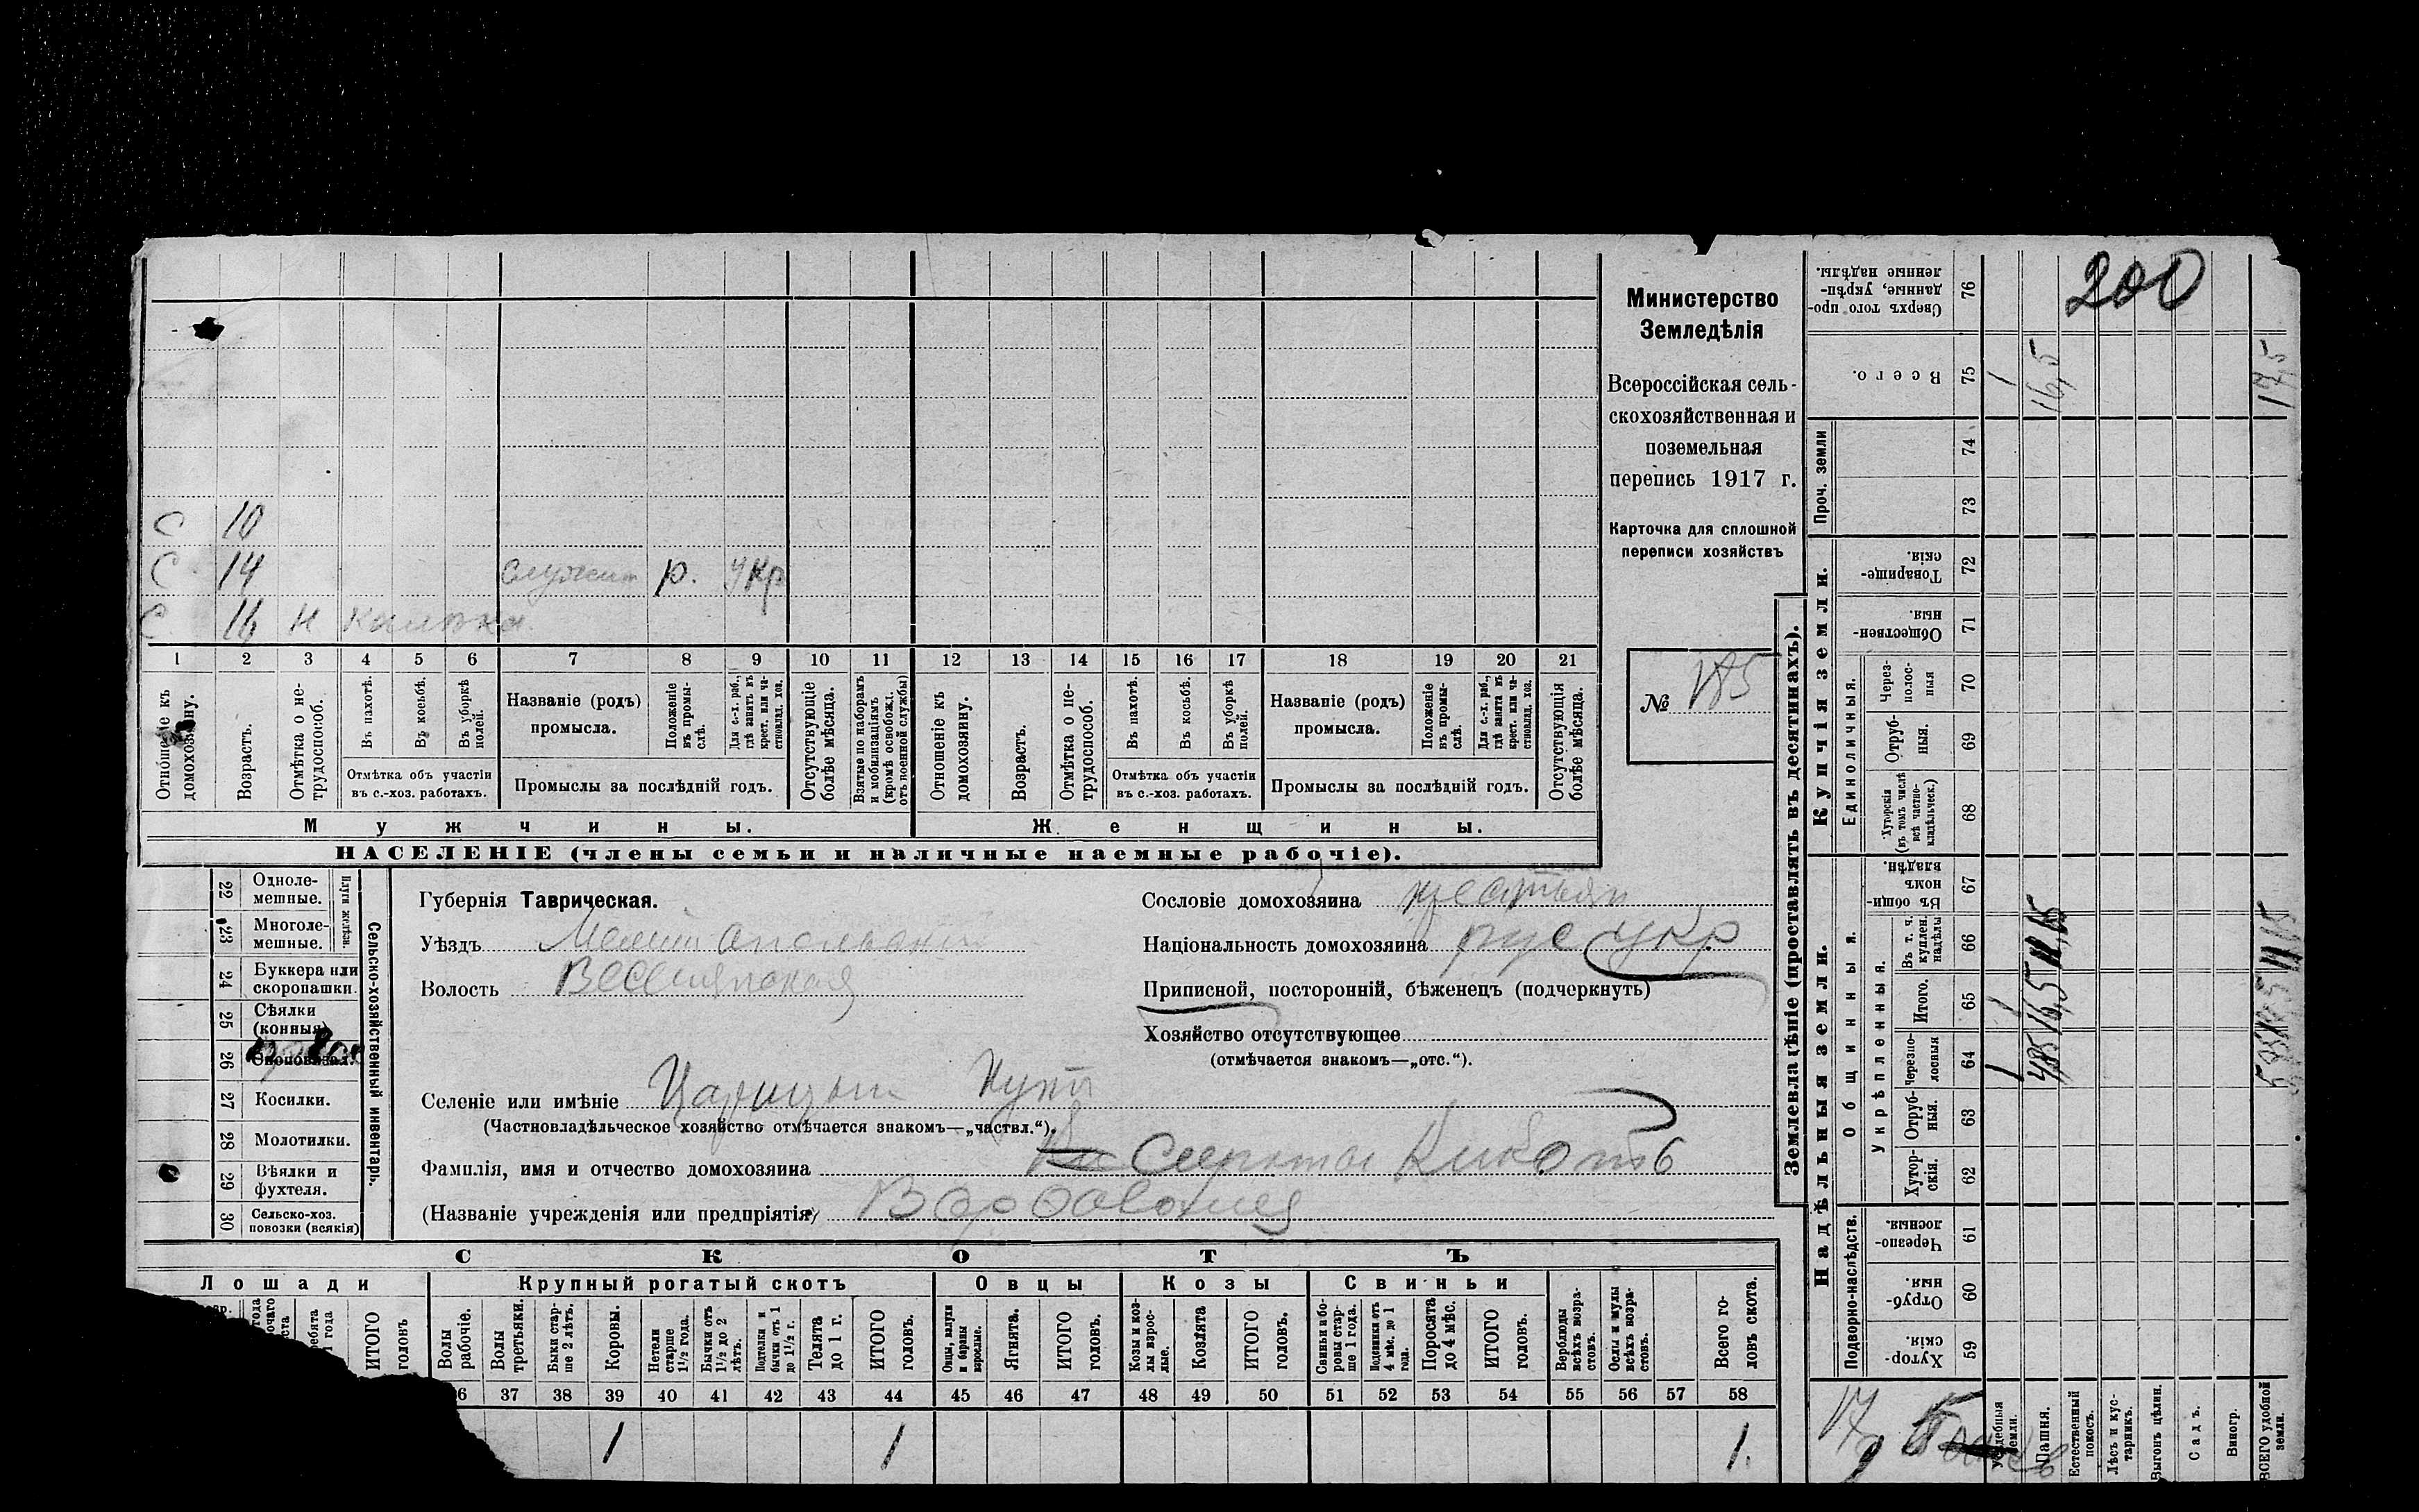 200
Министерство
Земледѣлія
Всероссійская сель-
скохозяйственная и
поземельная
перепись 1917 г.
Карточка для сплошной
переписи хозяйствъ
№ 185
С 10
С. 14 служит р. укр
С 16 н калѣка
1 2 3 4 5 6 7 8 9 10 11 12 13 14 15 16 17 18 19 20 21
Отношеніе къ домохозяину.
Возрастъ.
Отмѣтка о не-трудоспособ.
Въ пахотѣ.
Въ косьбѣ.
Въ уборкѣ полей.
Отмѣтка объ участіи
въ с.-хоз. работахъ.
Названіе (родъ)
промысла.
Положеніе въ промы-слѣ.
Для с.-х. раб., гдѣ занятъ въ крест. или ча-стновлад. хоз.
Промыслы за послѣдній годъ.
Отсутствующіе болѣе мѣсяца.
Взятые по наборамъ и мобилизаціямъ (кромѣ освобожд. отъ военной службы)
Отношеніе къ домохозяину.
Возрастъ.
Отмѣтка о не-трудоспособ.
Въ пахотѣ.
Въ косьбѣ.
Въ уборкѣ полей.
Отмѣтка объ участіи
въ с.-хоз. работахъ.
Названіе (родъ)
промысла.
Положеніе въ промы-слѣ.
Для с.-х. раб., гдѣ занята въ крест. или ча-стновлад. хоз.
Промыслы за послѣдній годъ.
Отсутствующія болѣе мѣсяца.
Мужчины. Женщины.
НАСЕЛЕНІЕ (члены семьи и наличные наемные рабочіе).
22 Одноле-мешные.
23 Многоле-мешные.
Плуги желѣзн.
24 Буккера или скоропашки.
25 Сѣялки (конныя)
26 Сноповязал.
27 Косилки.
28 Молотилки.
29 Вѣялки и фухтеля.
30 Сельско-хоз. повозки (всякія)
Сельско-хозяйственный инвентарь.
Губернія Таврическая.
Уѣздъ
Волость
Селеніе или имѣніе Царицын Кутъ
(Частновладѣльческое хозяйство отмѣчается знакомъ—„частвл.“).
Фамилія, имя и отчество домохозяина Сироты
(Названіе учрежденія или предпріятія)
Сословіе домохозяина крестьян
Національность домохозяина рус укр
Приписной, посторонній, бѣженецъ (подчеркнуть)
Хозяйство отсутствующее
(отмѣчается знакомъ—„отс.“).
СКОТЪ
Лошади Крупный рогатый скотъ Овцы Козы Свиньи
ИТОГО головъ
Волы рабочіе.
Волы третьяки.
Быки стар-ше 2 лѣтъ.
Коровы.
Нетели старше 1½ года.
Бычки отъ 1½ до 2 лѣтъ.
Подтелки и бычки отъ 1 до 1½ г.
Телята до 1 г.
ИТОГО головъ.
Овцы, валухи и бараны взрослые.
Ягнята.
ИТОГО головъ.
Козы и коз-лы взрос-лые.
Козлята
ИТОГО головъ.
Свиньи и бо-ровы стар-ше 1 года.
Подсвинки отъ 4 мѣс. до 1 года.
Поросята до 4 мѣс.
ИТОГО головъ.
Верблюды всѣхъ возра-стовъ.
Ослы и мулы всѣхъ возра-стовъ.
Всего го-ловъ скота.
37 38 39 40 41 42 43 44 45 46 47 48 49 50 51 52 53 54 55 56 57 58
1 1 1.
Землевладѣніе (проставлять въ десятинахъ).
Надѣльныя земли. Купчія земли.
Подворно-наслѣдств.
Общинныя.
Укрѣпленныя.
Единоличныя.
Проч. земли
76 Сверхъ того про-данные, укрѣп-ленные надѣлы.
75 Всего.
74
73
72 Товарище-скія.
71 Обществен-ныя
70 Через-полос-ныя
69 Отруб-ныя.
68 Хуторскія (въ томъ числѣ всѣ частно-владѣльческ.)
67 Въ общи-номъ владѣн.
66 Въ т. ч. куплен. надѣлы
65 Итого.
64 Черезпо-лосныя
63 Отруб-ныя.
62 Хутор-скія.
61 Черезпо-лосныя
60 Отруб-ныя.
59 Хутор-скія.
1 16,5 17,5
Усадебныя земли.
Пашня.
Естественный покосъ.
Лѣсъ и кус-тарникъ.
Выгонъ цѣлин.
Садъ.
Виногр.
ВСЕГО удобной земли.